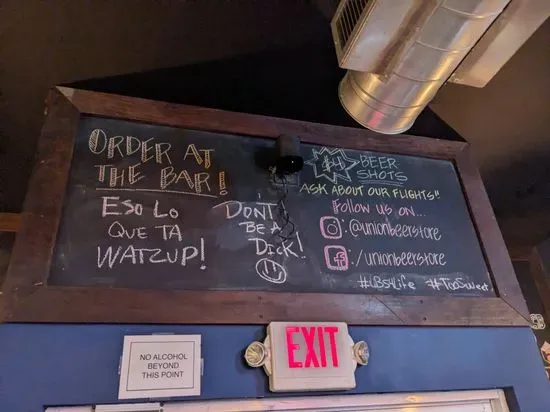 ORDER AT
THE BAR!
ESO LO
QUE TA
WATZUP!
DON'T
BE A
DICK!
$4 BEER
SHOTS
ASK ABOUT OUR FLIGHTS!!
Follow us on...
: @unionbeerstore
f : /unionbeerstore
#UBSLife #TooSweet
NO ALCOHOL
BEYOND
THIS POINT
EXIT